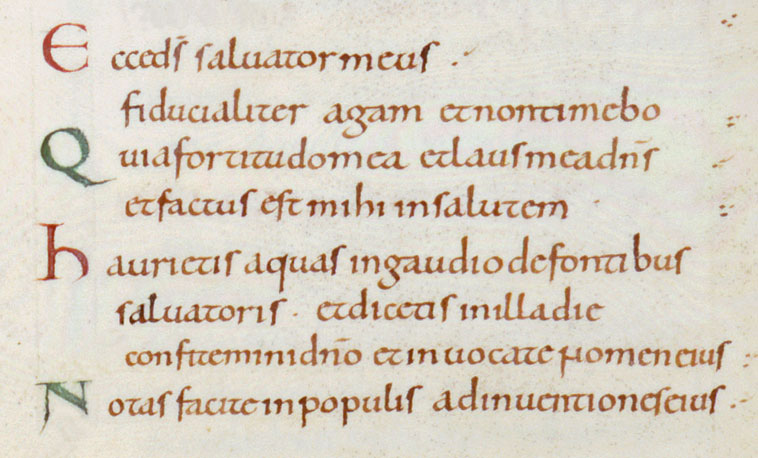 Ecceds̄ saluator meus .
fiducialiter agam et non timebo
Quia fortitudo mea et laus mea dn̄s
et factus est mihi in salutem .
haurietis aquas in gaudio de fontibus
saluatoris . et dicetis in illa die
confitemini dn̄o et inuocate nomen eius
Notas facite in populis adinuentiones eius .